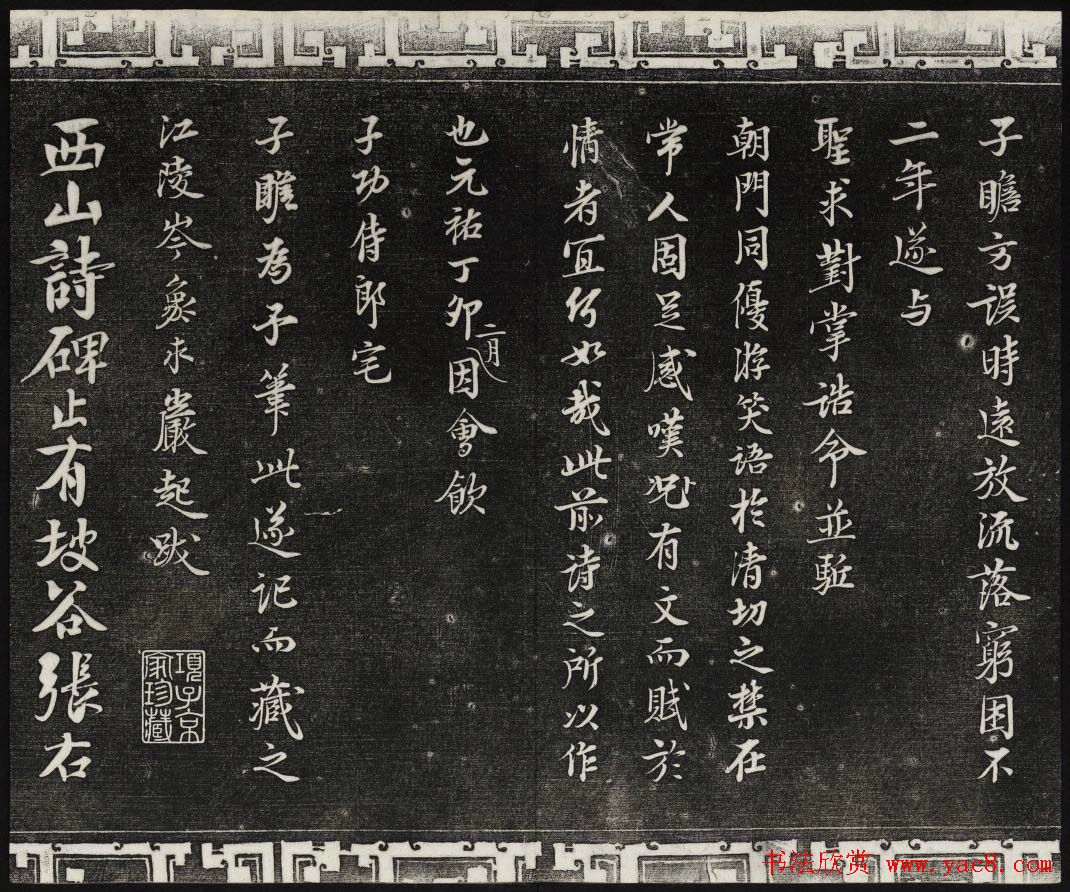 子瞻方誤時遠放流落窮困不
二年遂与
聖求對掌誥命並駈
朝門同優游笑語於清切之禁在
常人固足感嘆况有文而賦於
情者冝何如哉此前诗之所以作
也元祐丁卯二月因會飲
子功侍郎宅
子瞻為予筆此遂记而藏之
江陵岑象求巖起跋
項子京
家珍藏
西山詩碑止有坡谷張右
书法欣赏 www.yac8.com